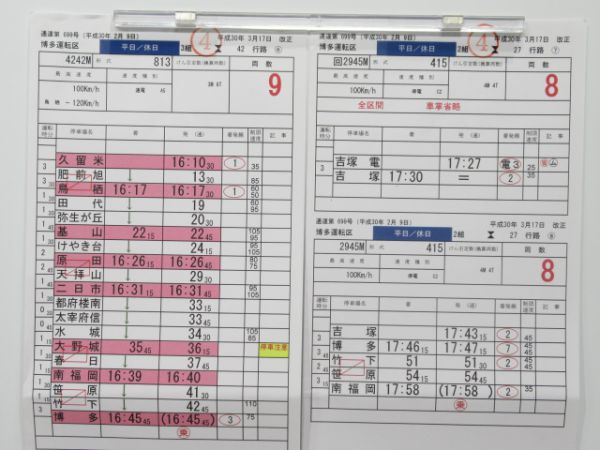 通達第 099号（平成30年 2月 9日） 平成30年 3月17日 改正
博多運転区 平日／休日 3組 42 行路 ⑥
④
4242M 形式 813 けん引定数(換算両数) 両数
最高速度 速度種別
100Km/h 速電 4M 4T 9
鳥栖 － 120Km/h
運転時分 停車場名 着 発（通） 着発線 制限速度 記事
久留米 16:10 30 ① 35
肥前旭 ↓ 13 30 85
鳥栖 16:17 16:17 30 ① 60 50
田代 ↓ 19 60 95
弥生が丘 ↓ 20 30
基山 22 15 22 45 105 95
けやき台 ↓ 24 15 95
原田 16:26 15 16:26 45 80 75
天拝山 ↓ 29 30
二日市 16:31 15 16:31 45 95 105
都府楼南 ↓ 33 15
太宰府信 ↓ 33 45
水城 ↓ 34 30 105 85
大野城 35 45 36 15 停車注意
春日 ↓ 37 45
南福岡 16:39 16:40
笹原 ↓ 41 30
竹下 ↓ 42 45 110
博多 16:45 45 (16:45 45) ③ 75
乗
通達第 099号（平成30年 2月 9日） 平成30年 3月17日 改正
博多運転区 平日／休日 2組 27 行路 ⑦
④
回2945M 形式 415 けん引定数(換算両数) 両数
最高速度 速度種別
100Km/h 停電 4M 4T 8
全区間 車掌省略
運転時分 停車場名 着 発（通） 着発線 制限速度 記事
3 吉塚電 17:27 電3 25
吉塚 17:30 ＝ ② 35
通達第 099号（平成30年 2月 9日） 平成30年 3月17日 改正
博多運転区 平日／休日 2組 27 行路 ⑧
2945M 形式 415 けん引定数(換算両数) 両数
最高速度 速度種別
100Km/h 停電 4M 4T 8
運転時分 停車場名 着 発（通） 着発線 制限速度 記事
吉塚 17:43 15 ② 45
博多 17:46 15 17:47 15 ⑦ 45
竹下 51 51 30 ② 45 45
笹原 54 54 15 45
南福岡 17:58 (17:58) ② 35
乗